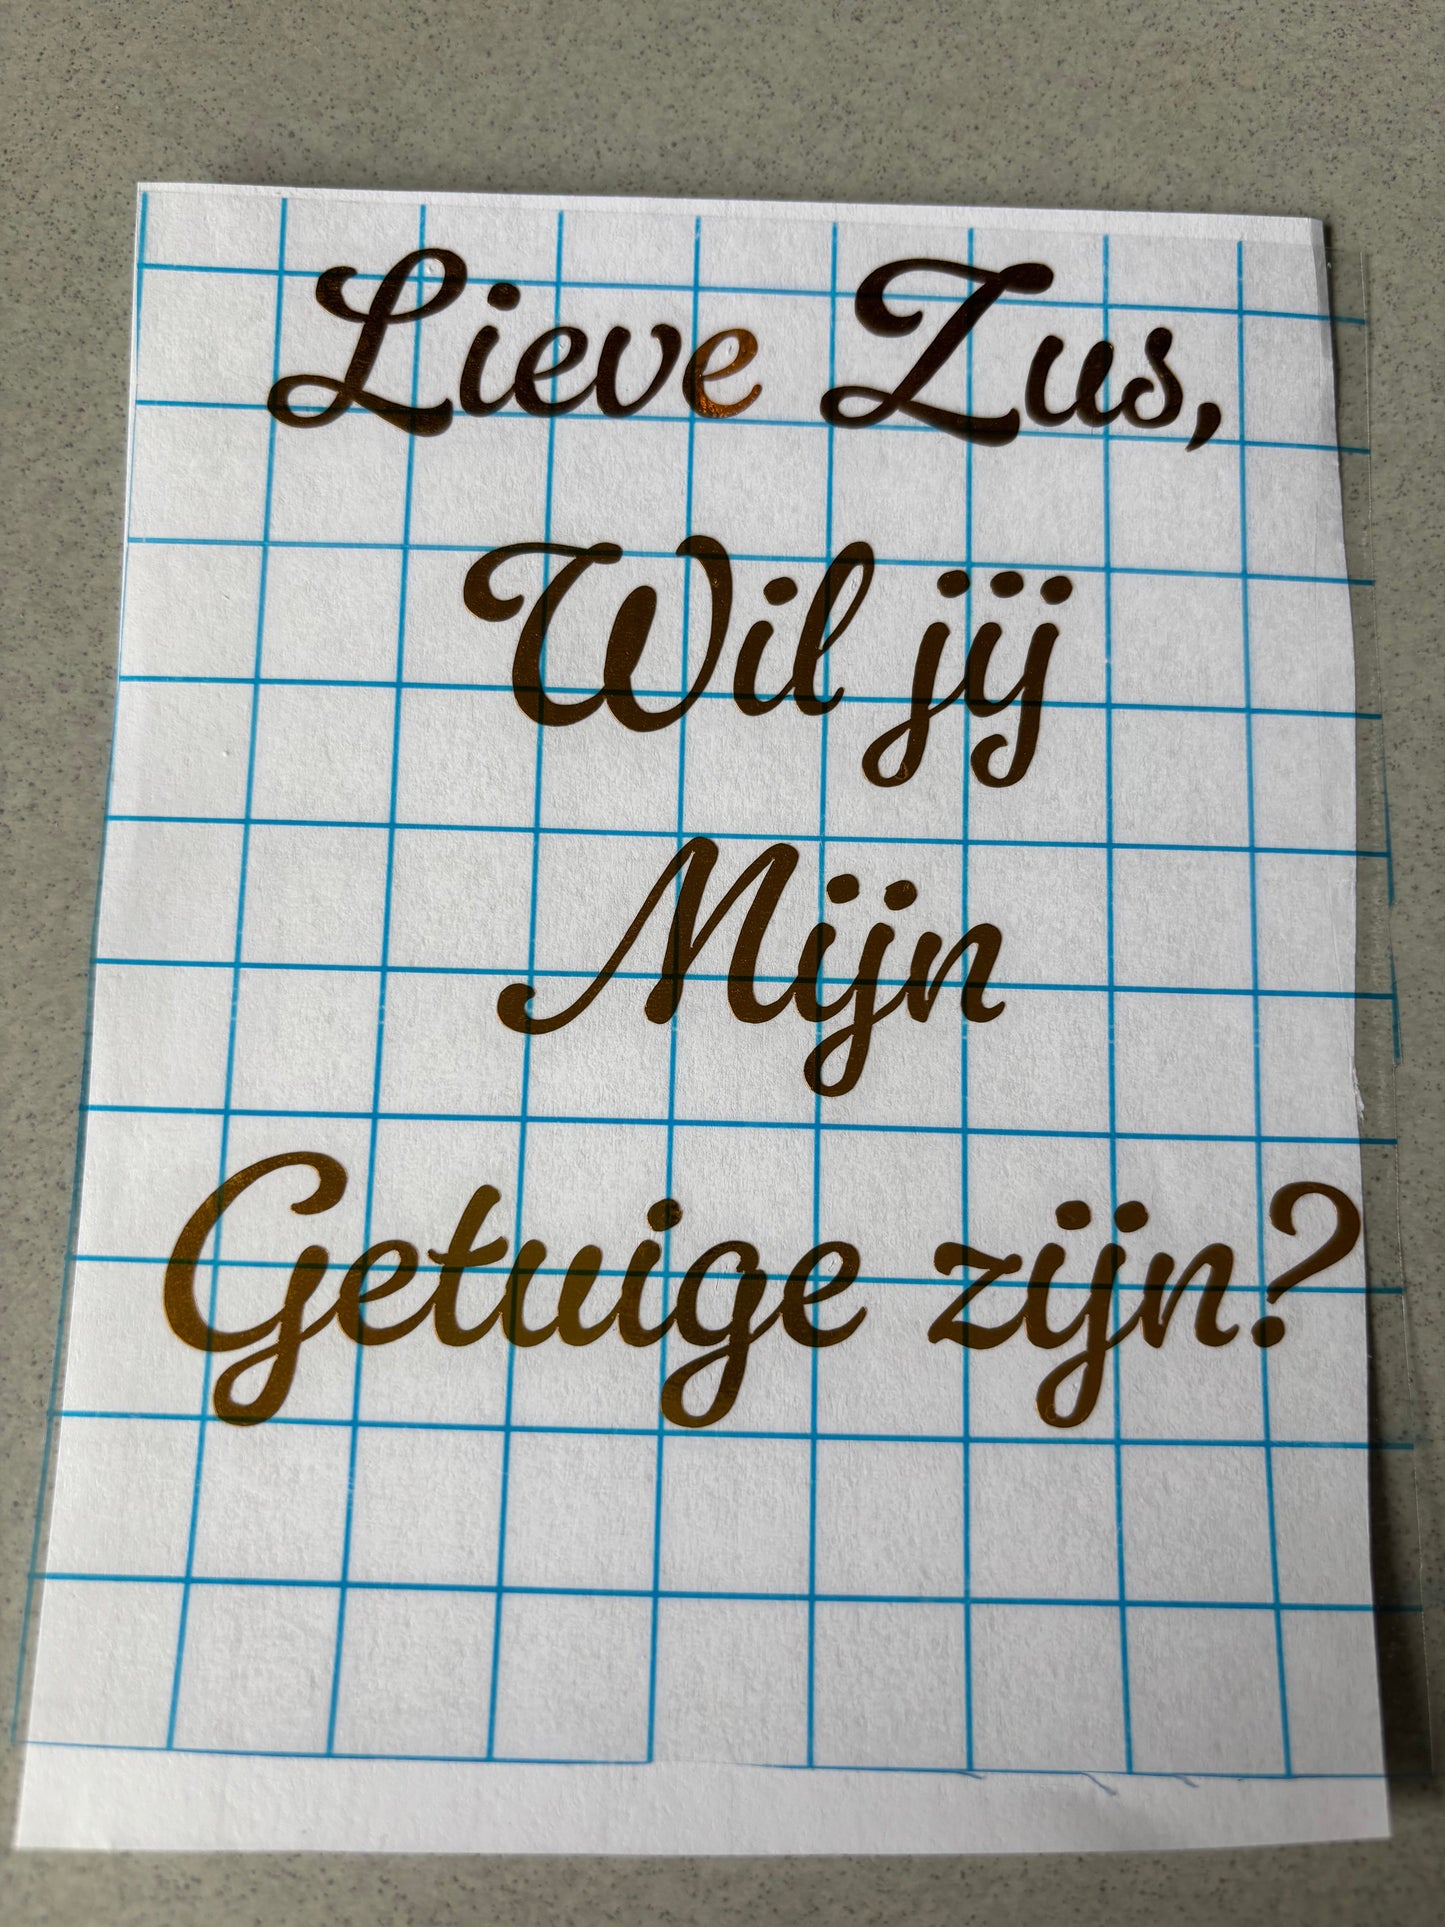 Lieve Zus,
Wil jij
Mijn
Getuige zijn?